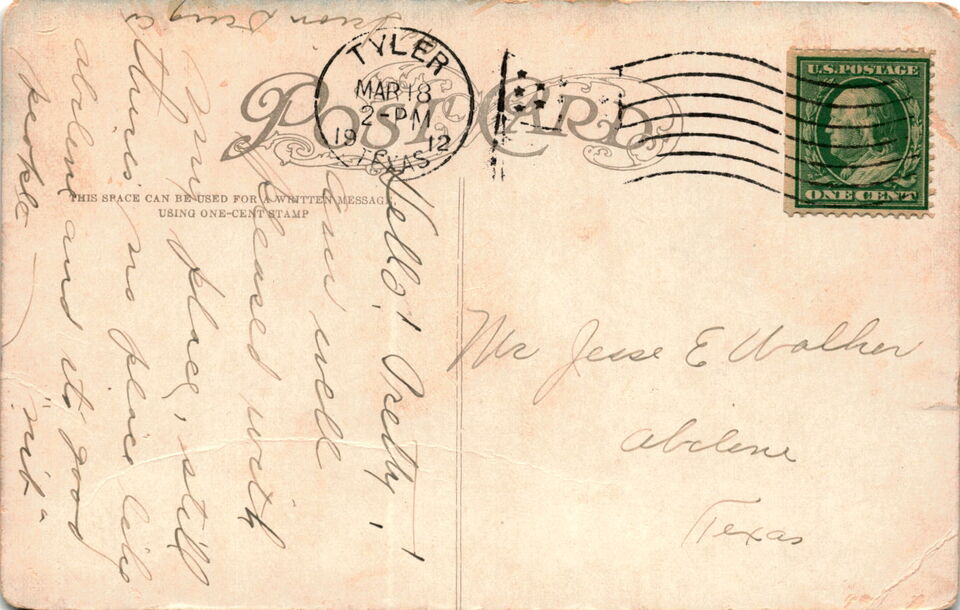 POST CARD
TYLER
MAR 18
2-PM
1912
TEXAS
U.S. POSTAGE
ONE CENT
THIS SPACE CAN BE USED FOR A WRITTEN MESSAGE
USING ONE-CENT STAMP
Hello! Pretty,
am well
pleased with
my place, still
there's no place like
abilene and its good
people
"nib"
Mr Jesse E Walker
abilene
Texas